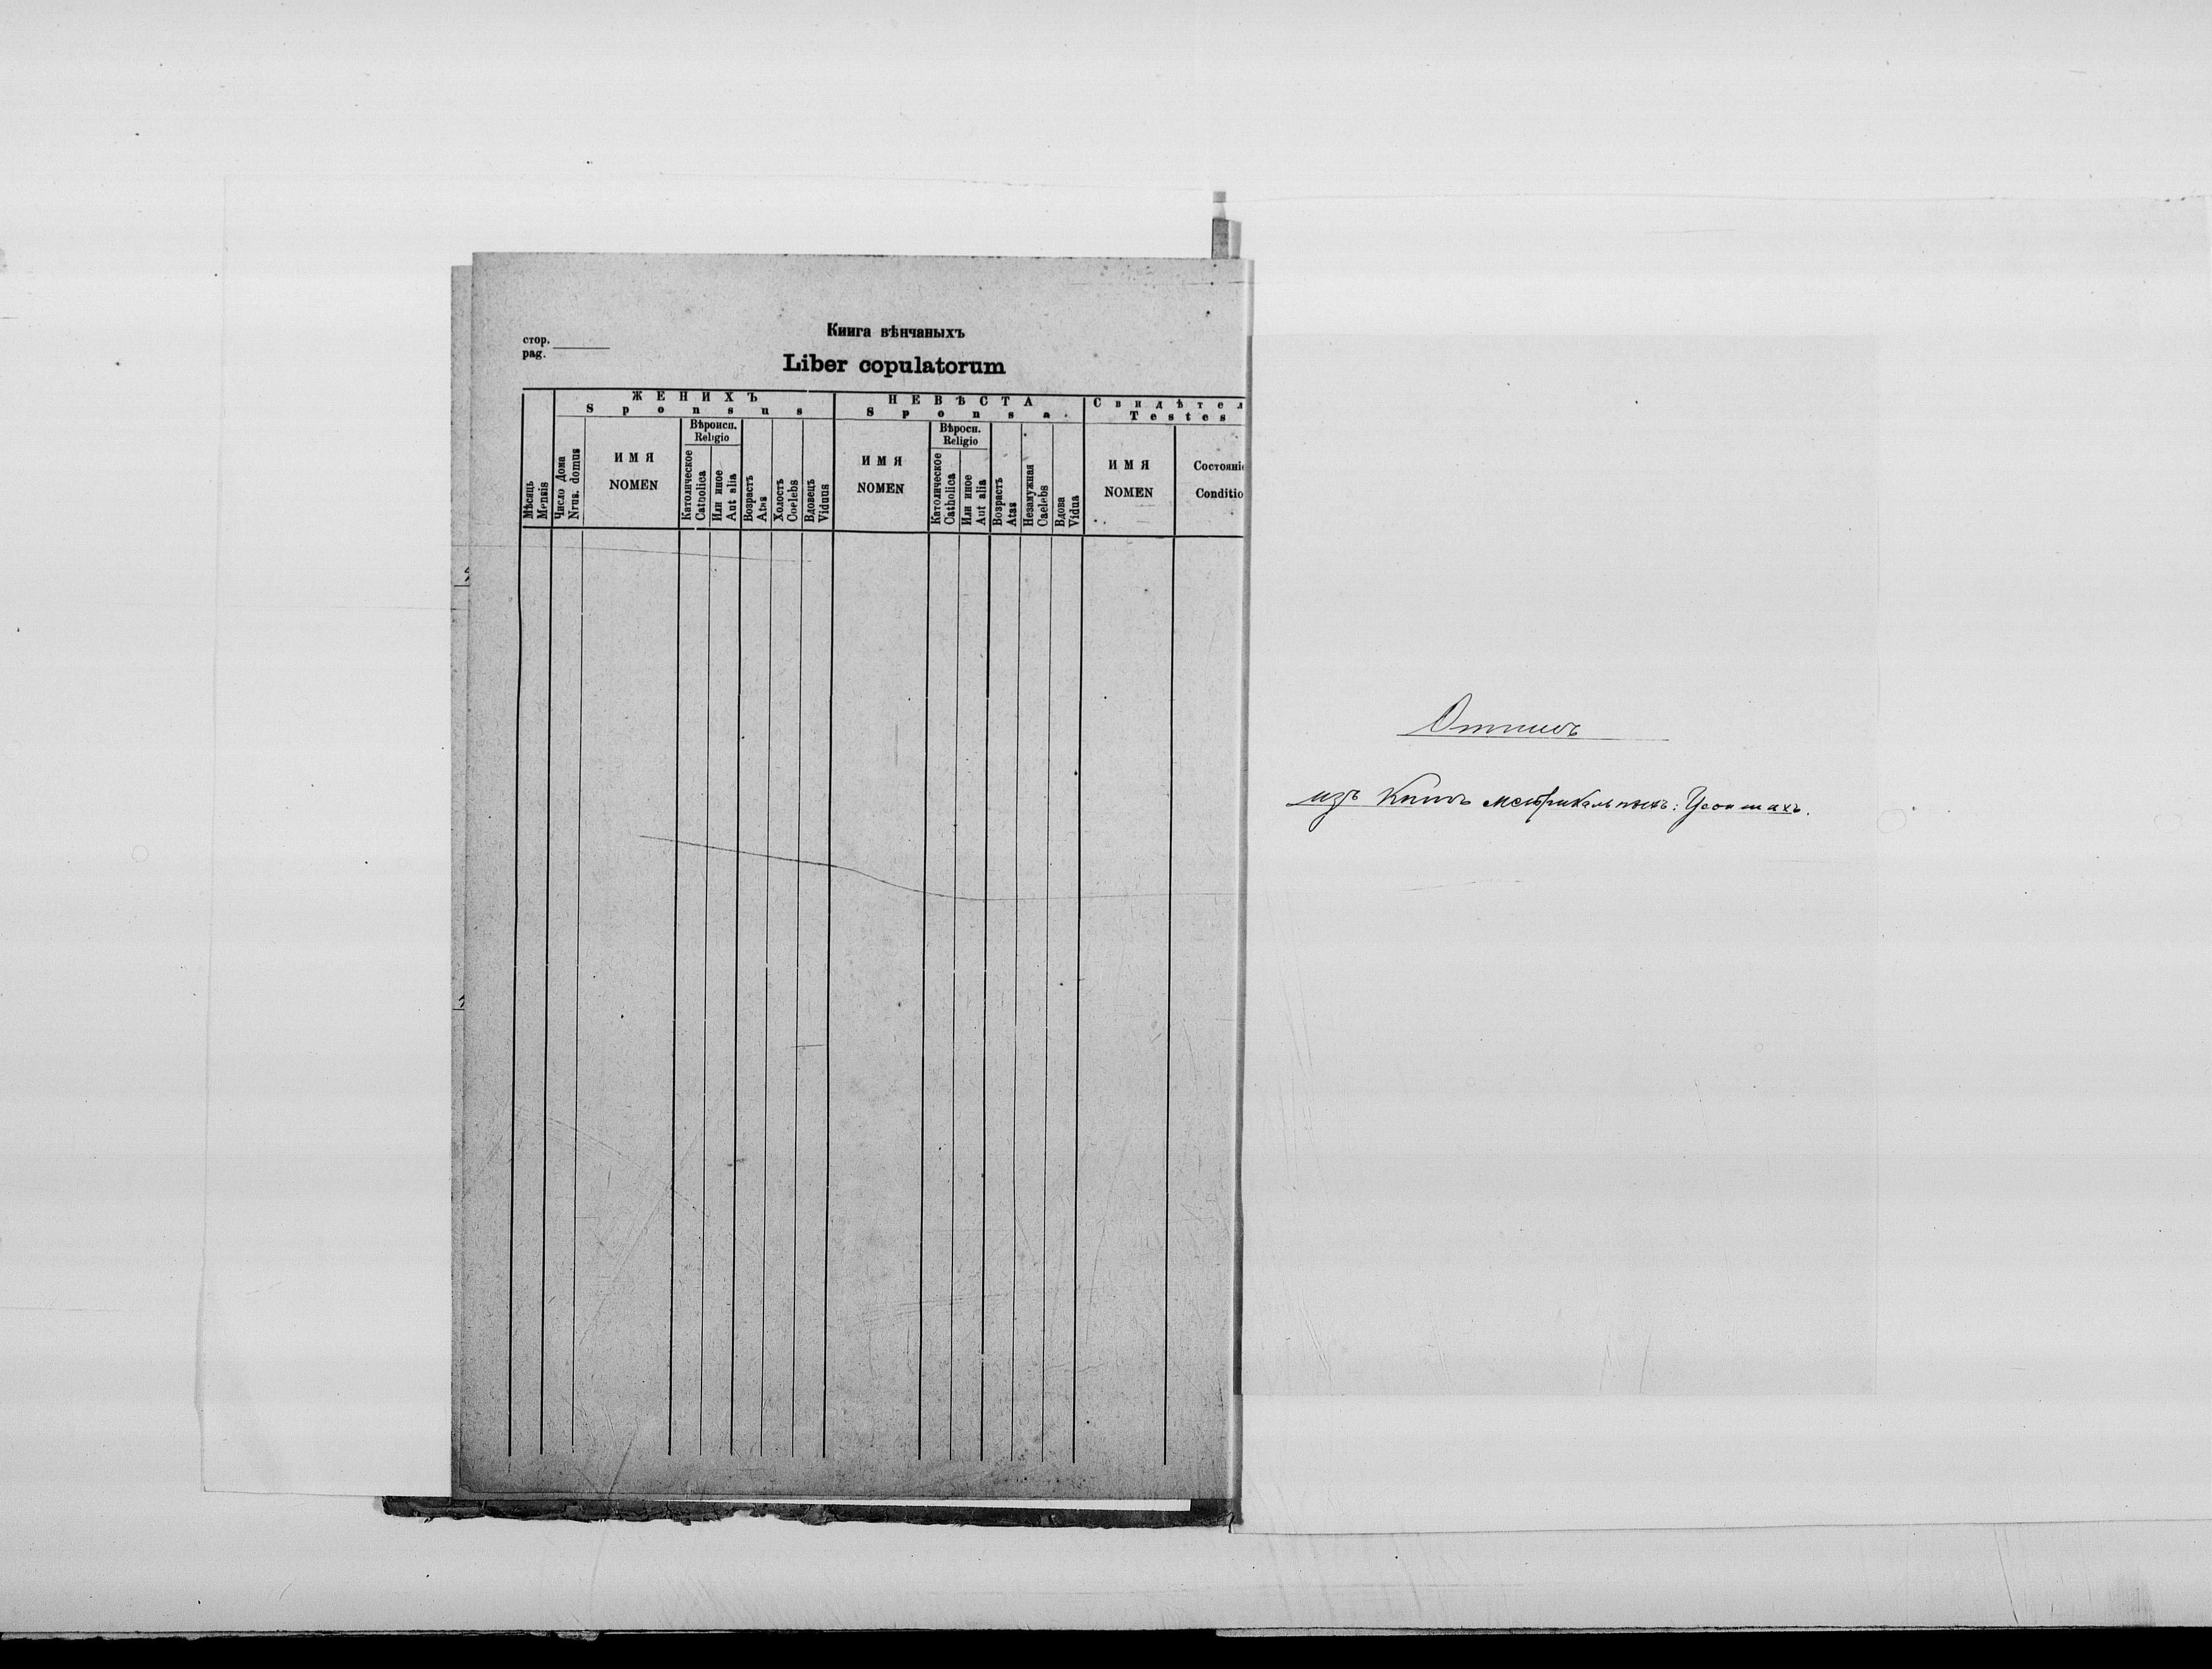 Книга вѣнчаныхъ
стор.
pag.
Liber copulatorum
Мѣсяць
Mensis
ЖЕНИХЪ
Sponsus
Число Дома
Nrus. domus
ИМЯ
NOMEN
Вѣроисп.
Religio
Католическое
Catholica
Или иное
Aut alia
Возрастъ
Atas
Холостъ
Coelebs
Вдовецъ
Viduus
НЕВѢСТА
Sponsa.
ИМЯ
NOMEN
Вѣросп.
Religio
Католическое
Catholica
Или иное
Aut alia
Возрастъ
Atas
Незамужная
Caelebs
Вдова
Vidua
Свидѣтел
Testes
ИМЯ
NOMEN
Состояніе
Conditio
Отписъ
изъ Книгъ метрикальныхъ: